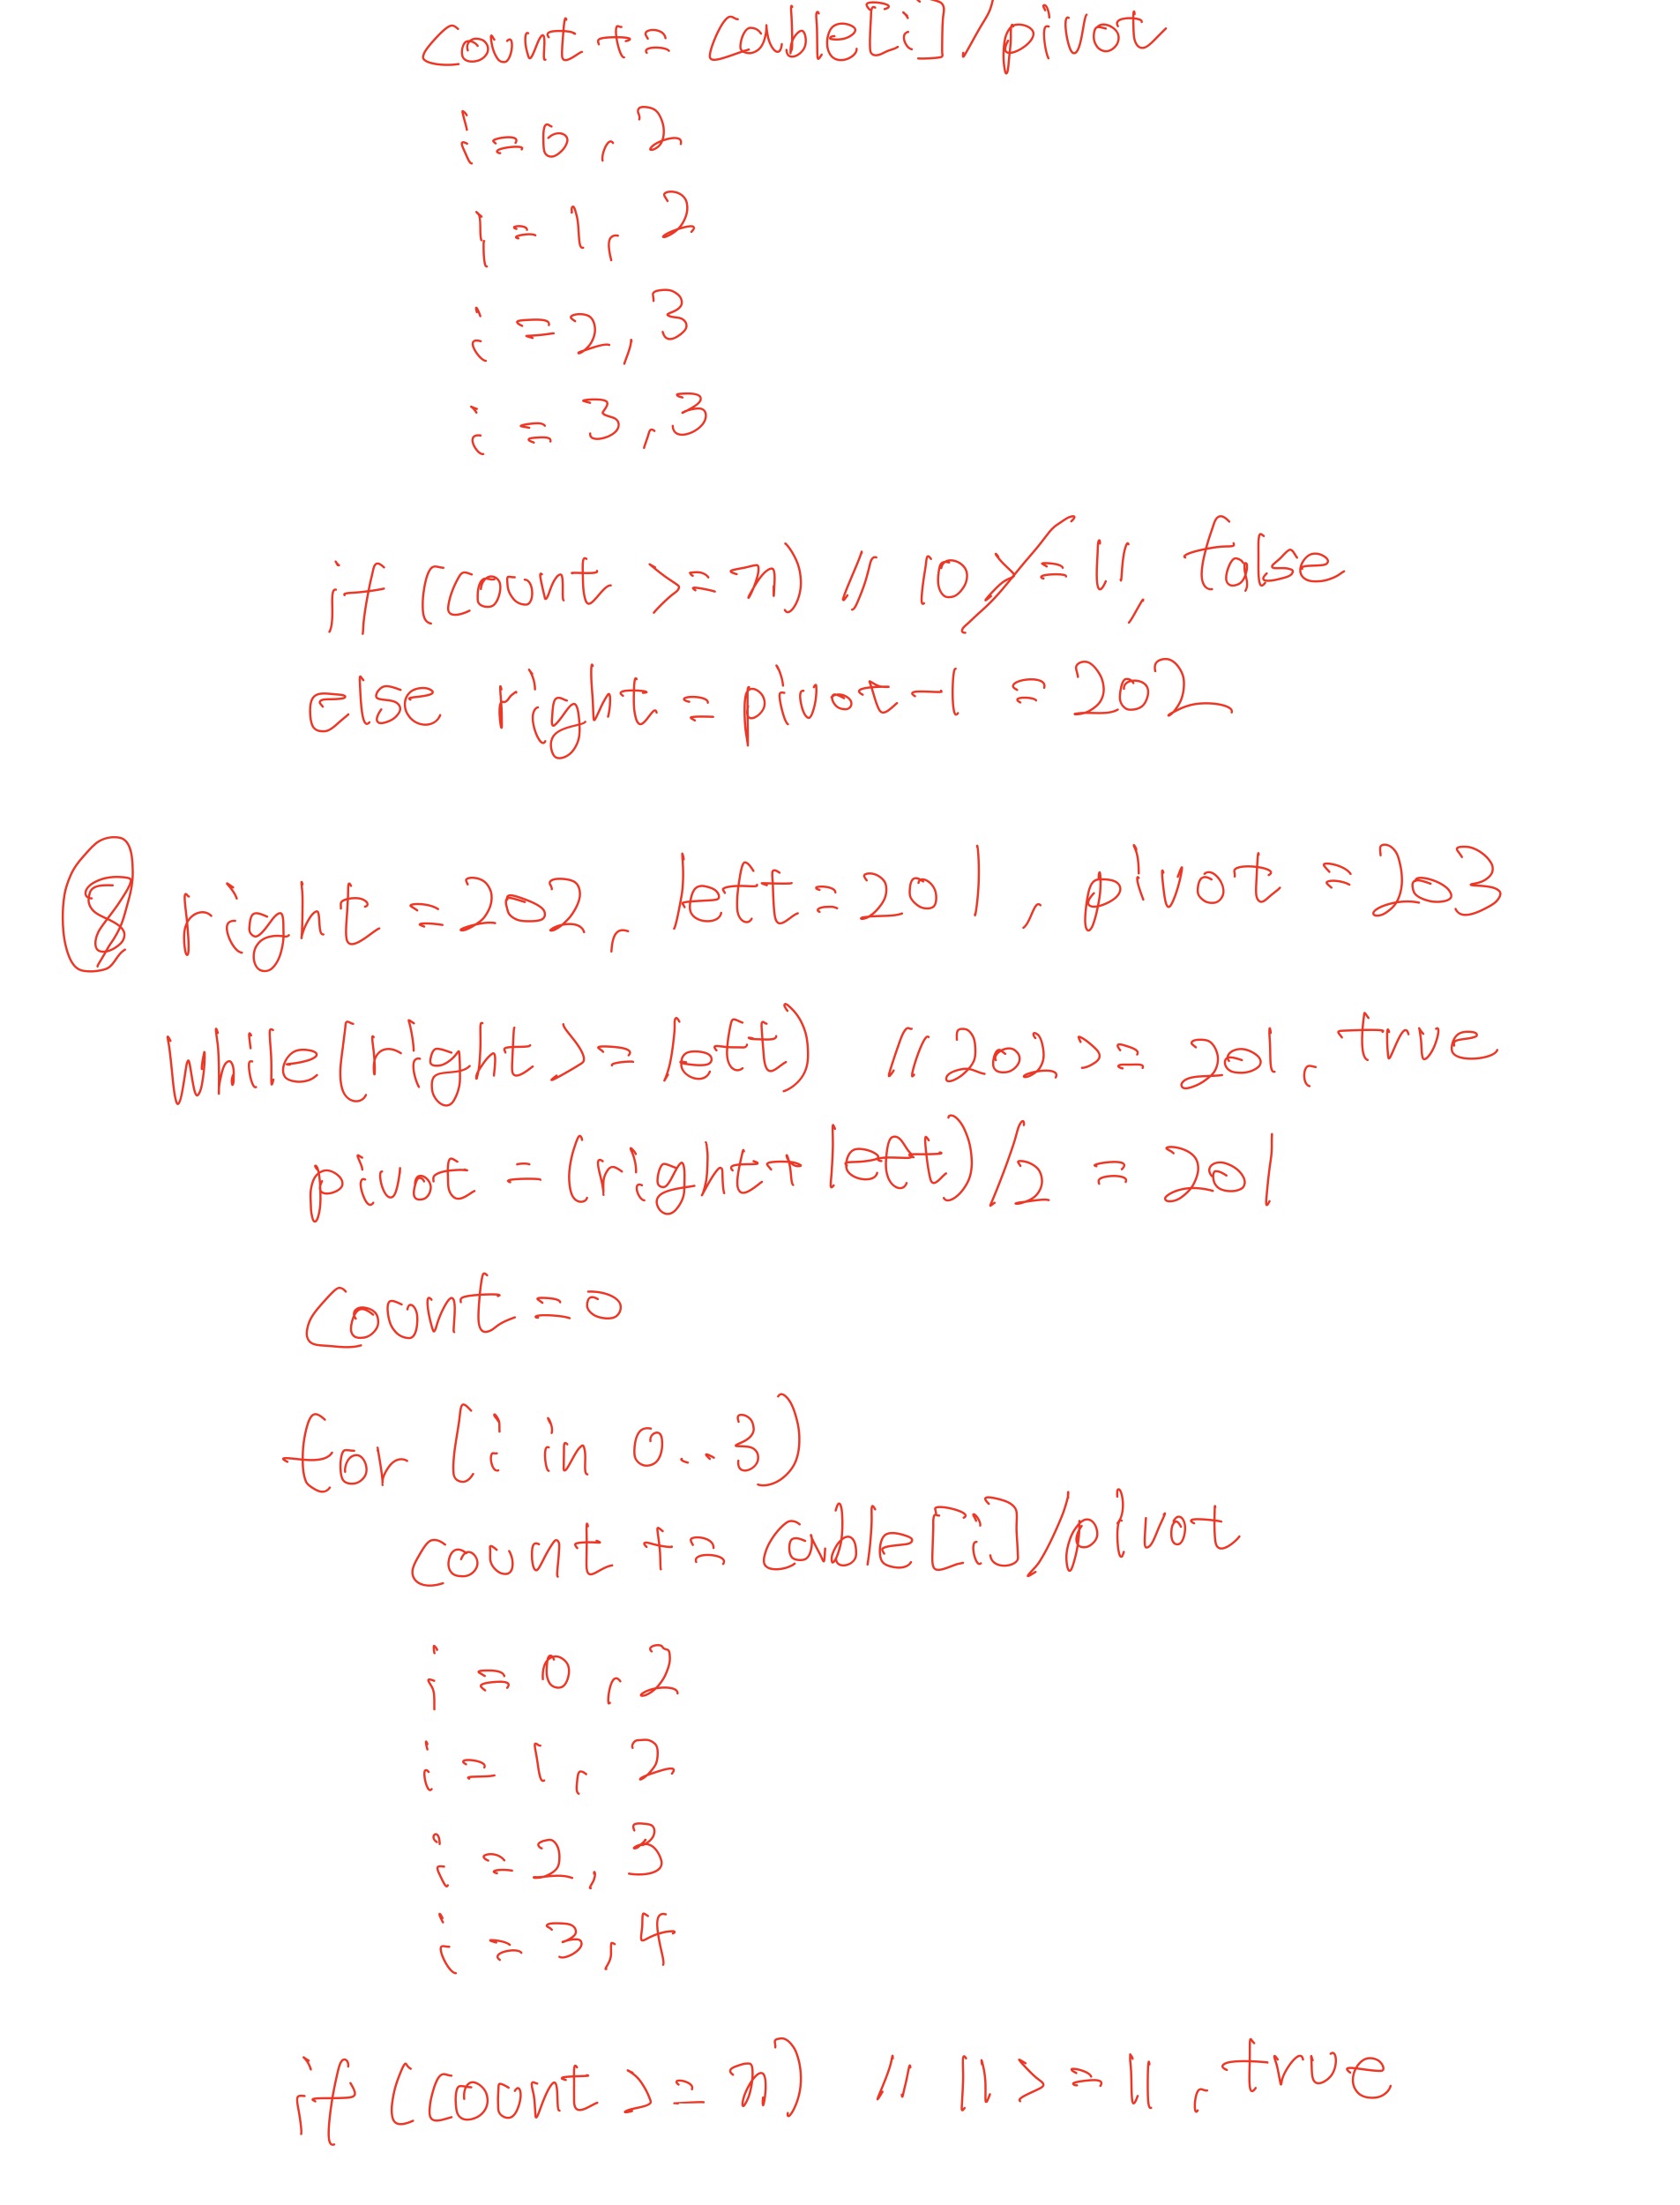 count += cable[i]/pivot
i=0, 2
i=1, 2
i=2, 3
i=3, 3
if (count >= n) // 10>=11, false
else right=pivot-1 = 202
8 right=202, left=201, pivot=203
while(right>=left) // 202 >= 201, true
pivot = (right+left)/2 = 201
count=0
for (i in 0..3)
count += cable[i]/pivot
i=0, 2
i=1, 2
i=2, 3
i=3, 4
if (count >= n) // 11>=11, true